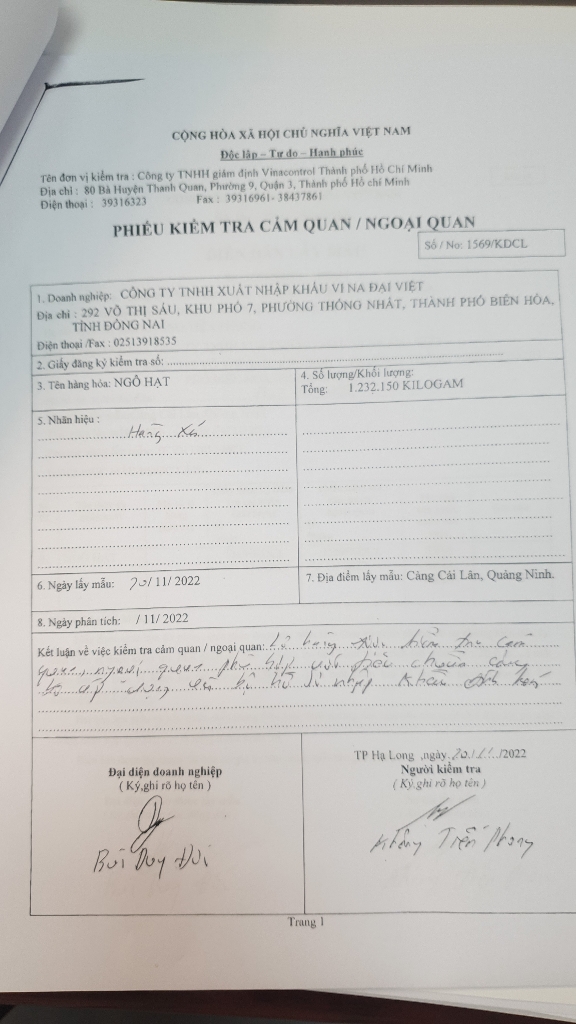 CỘNG HÒA XÃ HỘI CHỦ NGHĨA VIỆT NAM
Độc lập – Tự do – Hạnh phúc
Tên đơn vị kiểm tra : Công ty TNHH giám định Vinacontrol Thành phố Hồ Chí Minh
Địa chỉ : 80 Bà Huyện Thanh Quan, Phường 9, Quận 3, Thành phố Hồ chí Minh
Điện thoại : 39316323 Fax : 39316961- 38437861
PHIẾU KIỂM TRA CẢM QUAN / NGOẠI QUAN
Số / No: 1569/KDCL
1. Doanh nghiệp: CÔNG TY TNHH XUẤT NHẬP KHẨU VI NA ĐẠI VIỆT
Địa chỉ : 292 VÕ THỊ SÁU, KHU PHỐ 7, PHƯỜNG THỐNG NHẤT, THÀNH PHỐ BIÊN HÒA,
TỈNH ĐỒNG NAI
Điện thoại /Fax : 02513918535
2. Giấy đăng ký kiểm tra số:
3. Tên hàng hóa: NGÔ HẠT
4. Số lượng/Khối lượng:
Tổng: 1.232.150 KILOGAM
5. Nhãn hiệu :
Hàng Xá
6. Ngày lấy mẫu: 20/ 11/ 2022
7. Địa điểm lấy mẫu: Cảng Cái Lân, Quảng Ninh.
8. Ngày phân tích: / 11/ 2022
Kết luận về việc kiểm tra cảm quan / ngoại quan: Lô hàng kiểm tra cảm
quan, ngoại quan phù hợp với
nhập khẩu
TP Hạ Long ,ngày 20/11/2022
Đại diện doanh nghiệp
( Ký,ghi rõ họ tên )
Người kiểm tra
( Ký,ghi rõ họ tên )
Bùi Duy
Trang 1